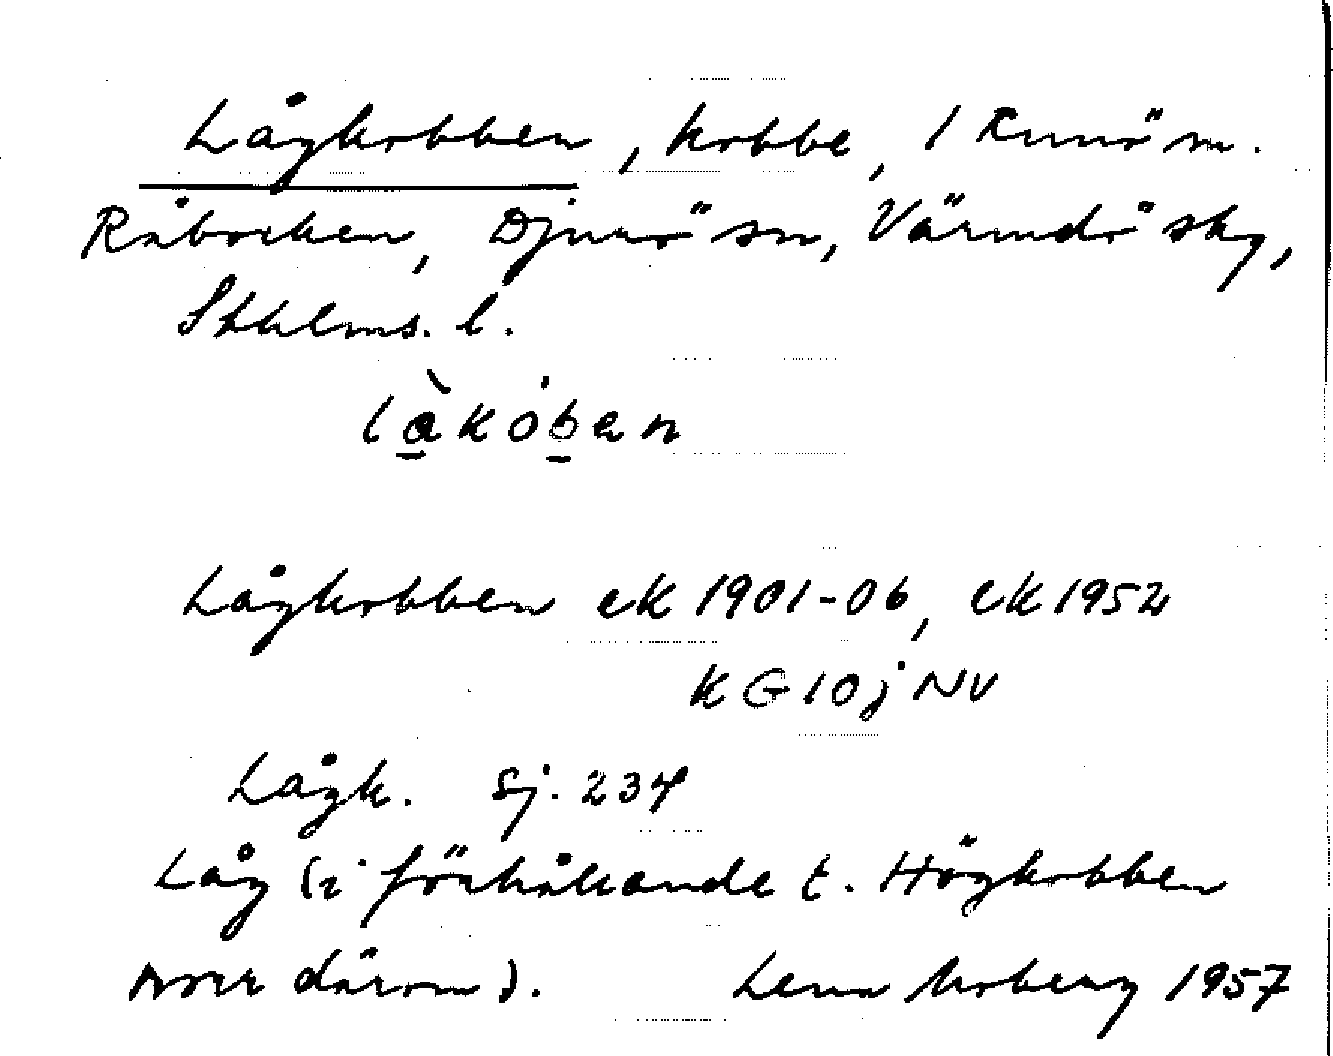 Lågkobben, kobbe, 1 Runö m.
Råbocken, Djurö sn, Värmdö skg,
Sthlms. l.
låkòben
Lågkobben ek 1901-06, ek 1952
KG 10j NV
Lågk. Sj. 234
Låg (i förhållande t. Högkobben
norr därom). Lena Moberg 1957